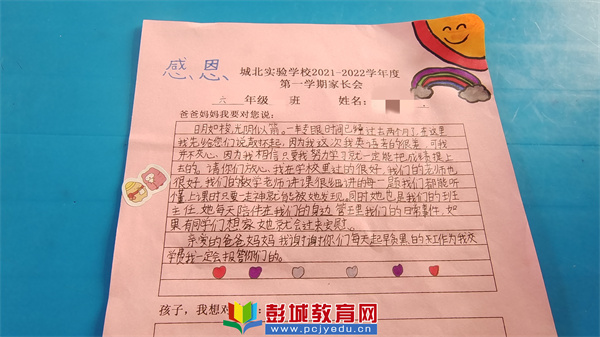 感恩
城北实验学校2021-2022学年度
第一学期家长会
六 年级 班 姓名:
爸爸妈妈我要对您说:
日月如梭,光阴似箭。一年专眼时间已经过去两个月了,在这里
我先给你们说声对不起,因为我这次我英语考的很差,可我
并不灰心,因为我相信只要我努力学习就一定能把成绩提上
去的。请你们放心,我在学校里过的很好,我们的老师也
很好,我们的数学老师讲课很细讲的每一题我们都能听
懂上课时只要走神就能被她发现。同时她也是我们的班
主任,她每天陪伴在我们的身边管理我们的日常事件,如
果有同学们想家她就会过来安慰。
亲爱的爸爸妈妈我谢谢你们每天起早贪黑的工作为我交
学费我一定会报答你们的。
孩子,我想对
:
彭城教育网
www.pcjyedu.cn